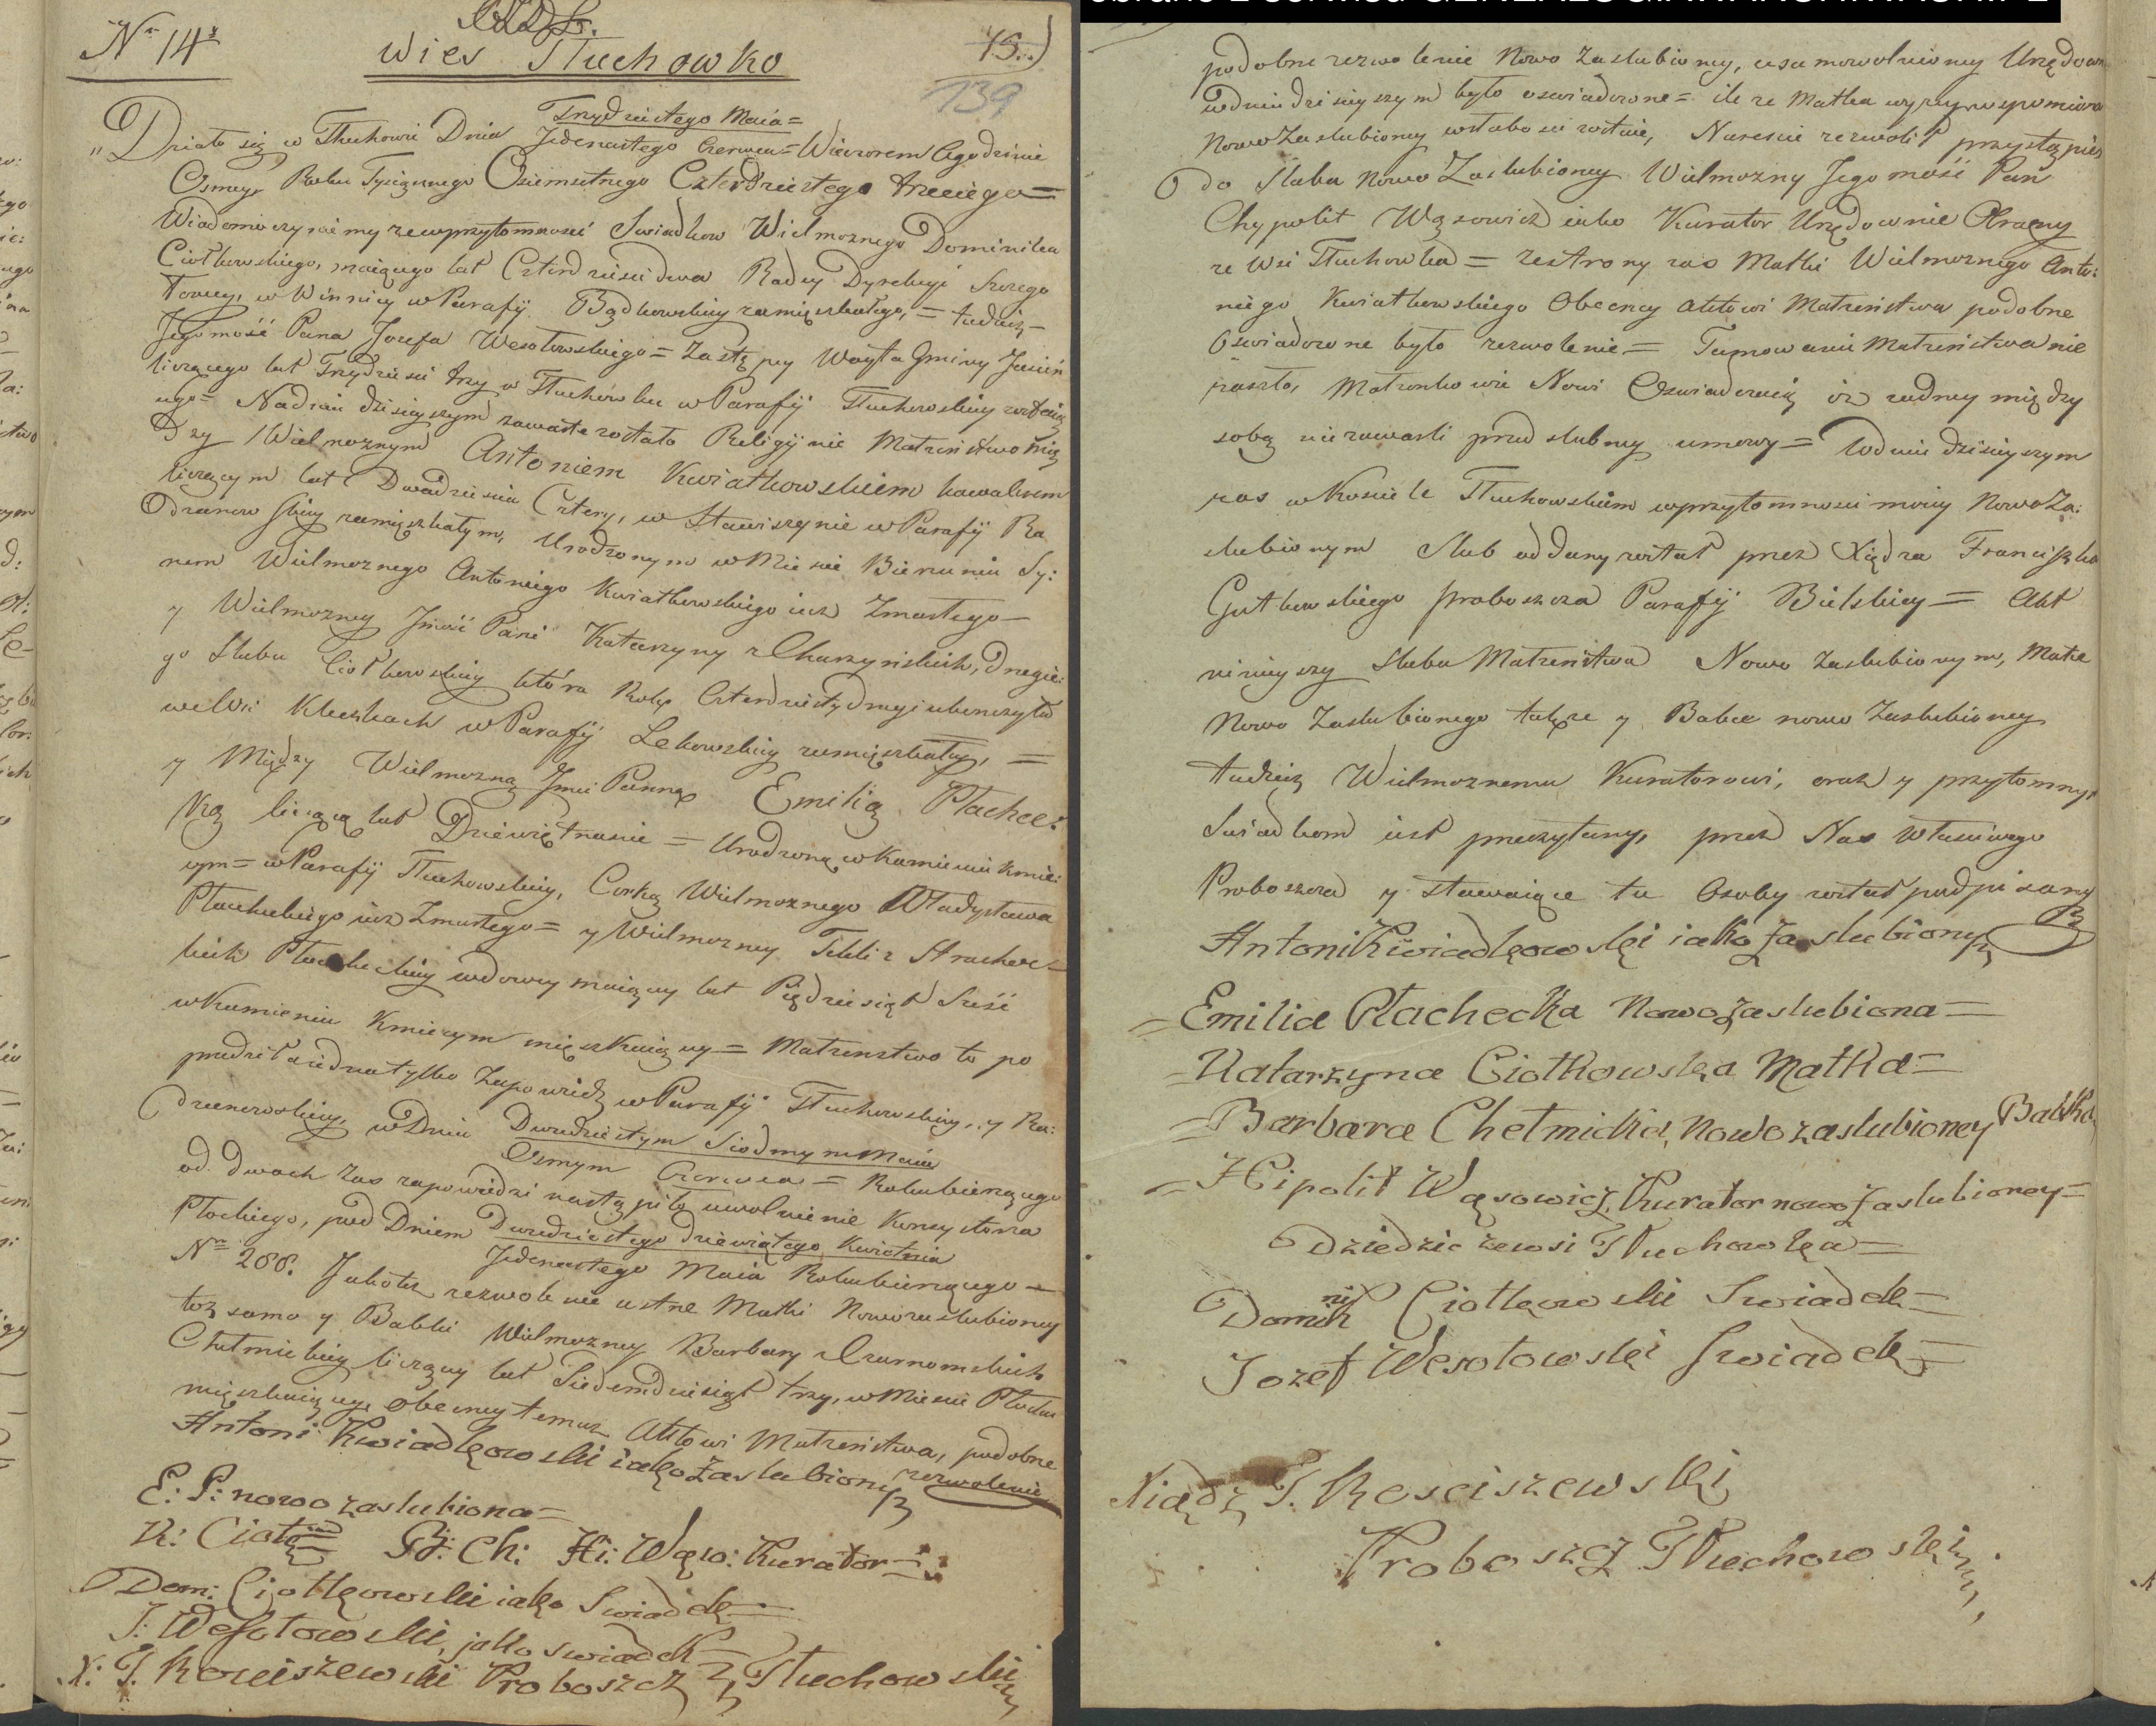 Nr 14
15.
Wies Tłuchowko
139
Trzydziestego Maia =
Działo się w Tłuchowie Dnia Jedenastego Czerwca = Wieczorem o godzinie
Osmey Roku Tysiącznego Osiemsetnego Czterdziestego trzeciego =
Wiadomo czyniemy ze w przytomnosci Swiadkow Wielmoznego Dominika
Ciołkowskiego, maiącego lat Czterdziesci dwa Radcy Dyrekcyi Szczego
łowey, w Winnicy w Parafij Bądkowskiey zamięszkałego, = tudziez =
Jegomość Pana Jozefa Wesołowskiego = Zastępcy Woyta Gminy Jasień
liczącego lat Trzydziesci trzy w Tłuchówku w Parafij Tłuchowskiey
ego = Na dniu dzisieyszym zawarte zostało Religijnie Małzeństwo mię
dzy Wielmoznym Antoniem Kwiatkowskiem kawalerem
liczącym lat Dwadziescia Cztery, w Stawiszynie w Parafij Ra
dzanowskiey zamięszkałym, Urodzonym w Miescie Bieżuniu Sy:
nem Wielmoznego Antoniego Kwiatkowskiego iuz Zmarłego =
y Wielmozney Jmość Pani Katarzyny z Charzyńskich, drugie:
go Slubu Ciołkowskiey która Roky Czterdziesty drugi ukonczyła
we Wsi Kłeczkach w Parafij Lekowskiey zamięszkałey, =
y Między Wielmozną Jmć Panną Emilią Płachec:
ką liczącą lat Dziewiętnascie = Urodzoną w Kamieniu Kmie:
cym = w Parafij Tłuchowskiey, Corką Wielmoznego Władysława
Płacheckiego iuz Zmarłego = y Wielmozney Tekli z
Płacheckiey wdowy maiącey lat Pięddziesiąt Sześć
w Kamieniu Kmiecym mięszkaiącey = Małzenstwo to po
przedziła iedna tylko Zapowiedz w Parafij Tłuchowskiey, y Ra:
dzanowskiey, w Dniu Dwudziestym Siodmym Maia
Osmym Czerwca = Roku biezącego
od dwoch zas zapowiedzi nastąpiło uwolnienie Konsystorza
Płockiego, pod Dniem Dwudziestego dziewiątego Kwietnia
Jedenastego Maia Roku biezącego =
Nro 288. Jakotez zezwolenie ustne Matki Nowozaslubioney
toz samo y Babki Wielmozney Barbary z Czarnomskich
Chełmickiey liczącey lat Siedemdziesiąt trzy, w Miescie Płocku
mięszkaiącey, obecney temuz Aktowi Małzeństwa, podobne
zezwolenie
Antoni Kwiadkowski iako Zaslubiony
E: P: nowo zaslubiona =
K: Ciołk
B: Ch: Hi: Wąso: Kurator =
Dom: Ciołkowski iako Swiadek =
J: Wesołowski, jako swiadek =
X: J. Rosciszewski Proboszcz Tłuchowski
podobne zezwolenie Nowo Zaslubioney, usamowolnioney Urzędown
w dniu dzisieyszym było oswiadczone = ile ze Matka wyzey wspomniona
Nowo Zaslubioney w słabosci zostaie, Nareszcie zezwolił przystąpie
do Slubu Nowo Zaslubioney Wielmozny Jegomość Pan
Chypolit Wąsowicz iako Kurator Urzędownie Obrany
ze Wsi Tłuchowka = ze strony zas Matki Wielmoznego Anto:
niego Kwiatkowskiego Obecney Aktowi Małzeństwa podobne
Oswiadczone było zezwolenie = Tamowanie Małzeństwa nie
zaszło, Małzonkowie Nowi Oswiadczaią iz zadney między
sobą nie zawarli przedslubney umowy = w dniu dzisieyszym
zas w Kosciele Tłuchowskiem w przytomnosci moiey Nowo Za:
slubionym Slub oddany został przez Xiędza Franciszka
Gutkowskiego Proboszcza Parafij Bielskiey = Akt
ninieyszy Slubu Małzeństwa Nowo Zaslubionym, Matce
Nowo Zaslubionego także y Babce nowo Zaslubioney
tudziez Wielmoznemu Kuratorowi, oraz y przytomnym
Swiadkom iest przeczytany, przez Nas Własciwego
Proboszcza y Stawaiące tu Osoby został podpisany
Antoni Kwiadkowski iako Zaslubiony
= Emilia Płachecka Nowo Zaslubiona =
= Katarzyna Ciołkowska Matka =
= Barbara Chełmicka, Nowo zaslubioney Babka
= Hipolit Wąsowicz, Kurator nowo Zaslubioney =
Dziedzic ze wsi Tłuchowka =
Dominik Ciołkowski Swiadek =
Jozef Wesołowski Swiadek =
Xiądz J. Rosciszewski
Proboszcz Tłuchowski